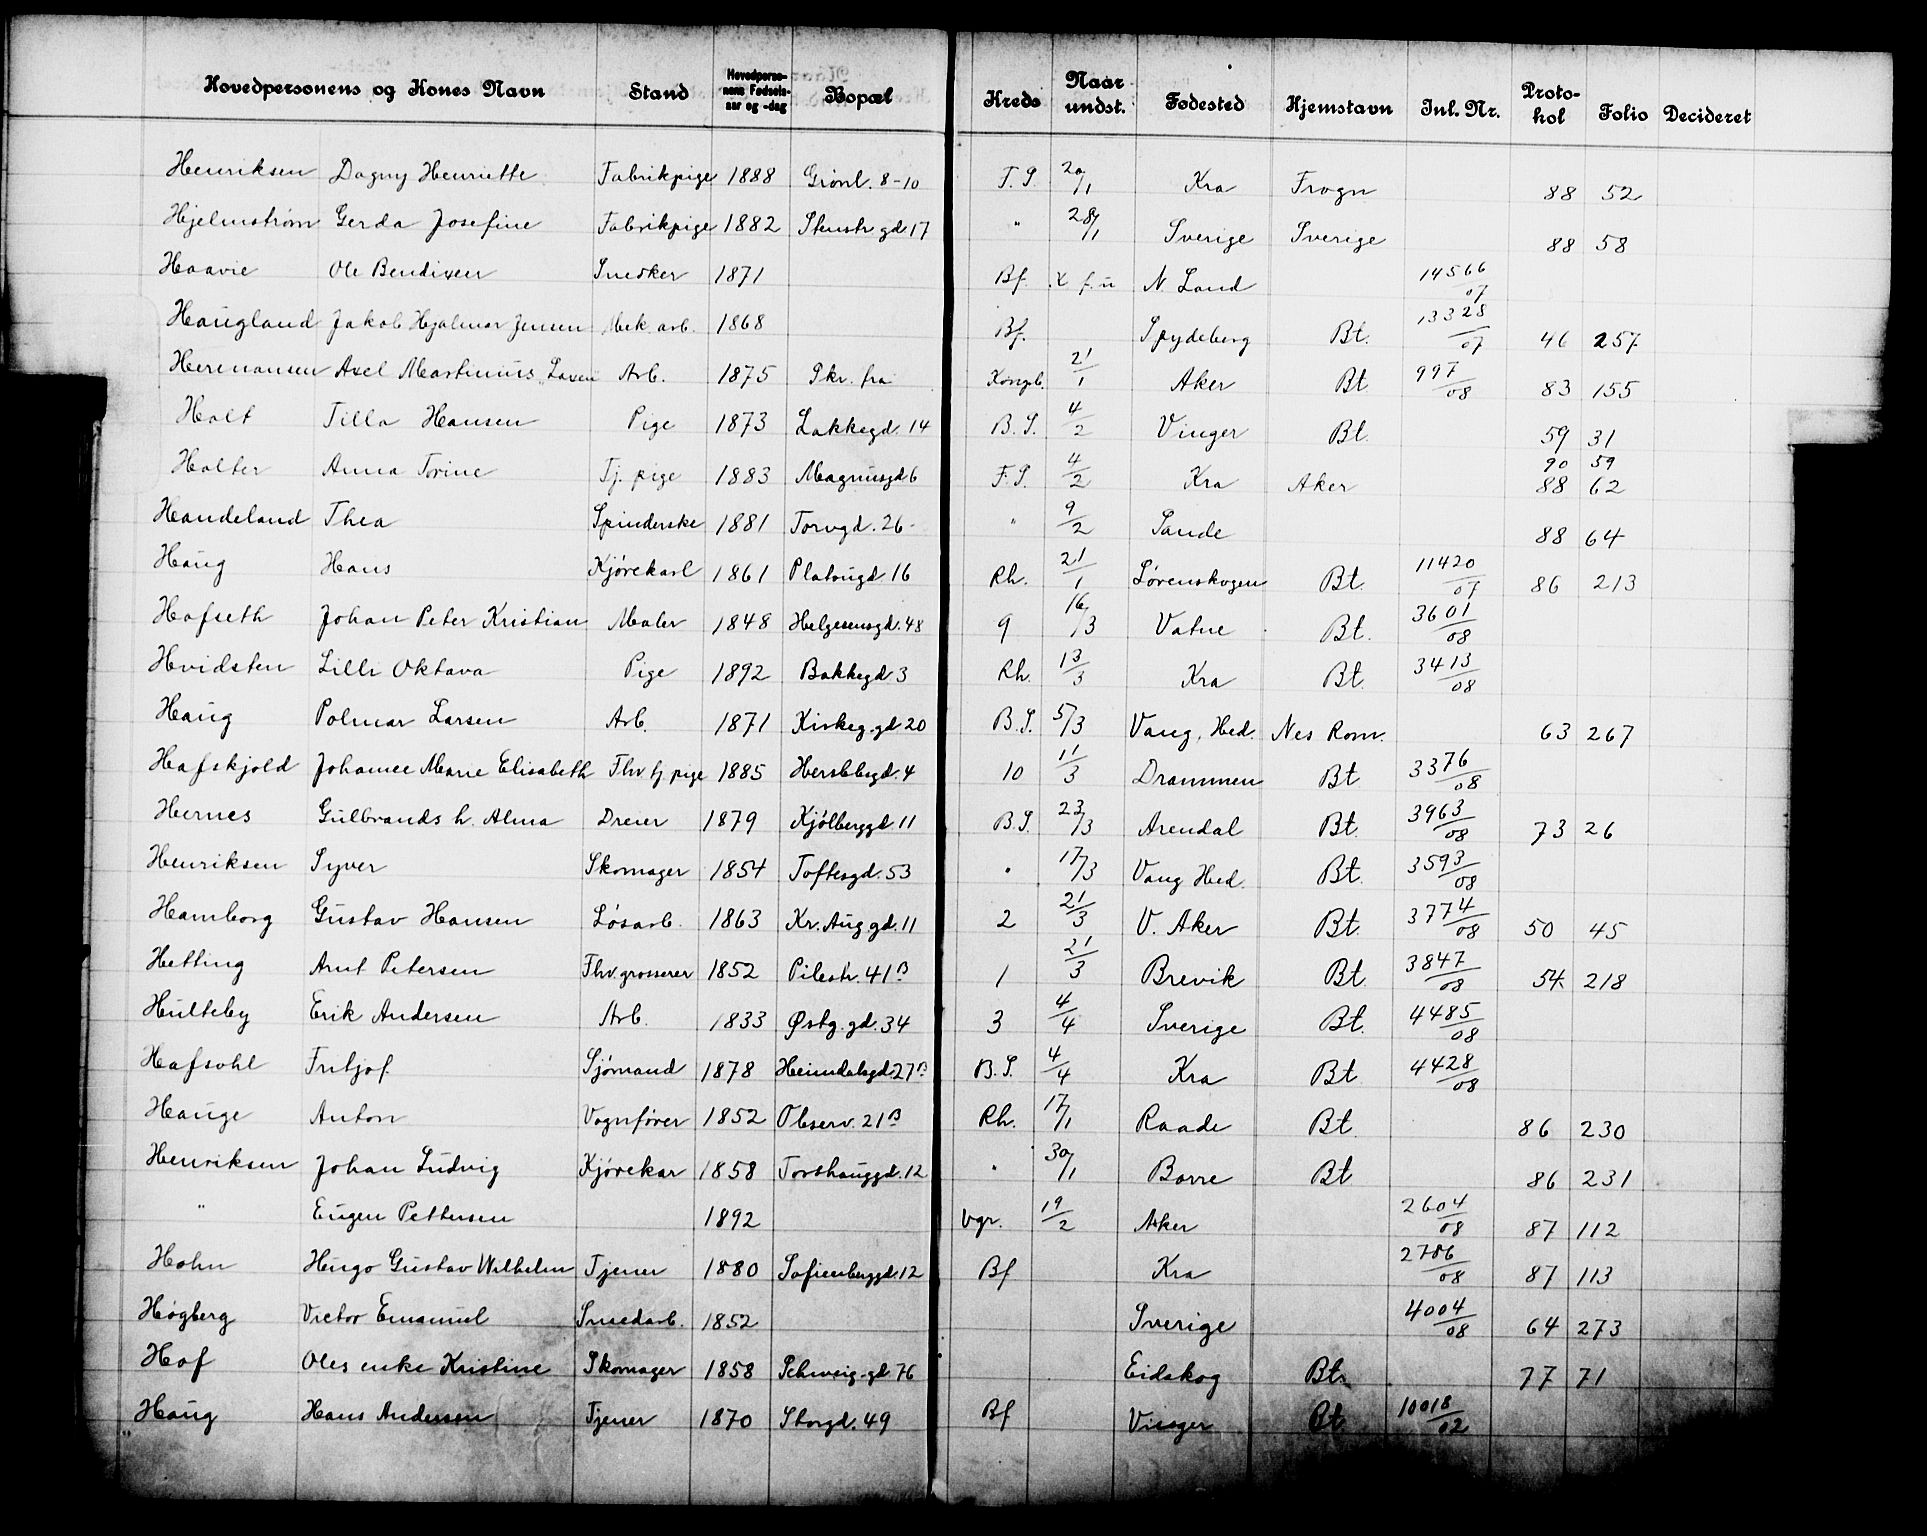 Hovedpersonens og Kones Navn Stand Hovedpersonens Fødselsaar og -dag Bopæl Kreds Naar undst. Fødested Hjemstavn Inl. Nr. Protokol Folio Decideret
Henriksen Dagny Henriette Fabrikpige 1888 Grönl. 8-10 F.S. 20/1 Kra Frogn 88 52
Hjelmstrøm Gerda Josefine Fabrikpige 1882 Stenstr gd 17 " 28/1 Sverige Sverige 88 58
Haavie Ole Bendixen Snedker 1871 Bf. N. Land 14566/07
Haugland Jakob Hjalmar Jensen Mek. arb. 1868 Bf. Spydeberg Bt. 13328/07 46 257
Hermansen Axel Martinius Arb. 1875 Skr. fra Kongsb. 21/1 Aker Bt 997/08 83 155
Holt Tilla Hansen Pige 1873 Lakkegd. 14 B.S. 4/2 Vinger Bt. 59 31
Holter Anna Torine Tj. pige 1883 Magnusgd 6 F.S. 4/2 Kra Aker 90 59 88 62
Handeland Thea Spinderske 1881 Torvgd. 26 " 9/2 Sande 88 64
Haug Hans Kjörekarl 1861 Platougd 16 Rh. 21/1 Lörenskogen Bt. 11420/07 86 213
Hafseth Johan Peter Kristian Maler 1848 Helgesensgd. 48 9 16/3 Vatne Bt. 3601/08
Hvidsten Lilli Oktava Pige 1892 Bakkegd 3 Rh. 13/3 Kra Bt. 3413/08
Haug Polmar Larsen Arb. 1871 Kirkeg.gd 20 B.S. 5/3 Vang, Hed. Nes Rom. 63 267
Hafskjold Johanne Marie Elisabeth Fhv tj pige 1885 Herslebgd. 4 10 1/3 Drammen Bt 3376/08
Hernes Gulbrands h. Alma Dreier 1879 Kjölberggd. 11 B.S. 23/3 Arendal Bt. 3963/08 73 26
Henriksen Syver Skomager 1854 Toftesgd. 53 " 17/3 Vang Hed. Bt. 3593/08
Hamborg Gustav Hansen Løsarb. 1863 Kr. Aug. gd. 11 2 21/3 V. Aker Bt. 3774/08 50 45
Hetting Arnt Petersen Fhv. grosserer 1852 Pilestr. 41B 1 21/3 Brevik Bt. 3847/08 54 218
Hulteby Erik Andersen Arb. 1833 Østg. gd. 34 3 4/4 Sverige Bt. 4485/08
Hafsohl Fritjof Sjömand 1878 Heimdalsgd 27B B.S. 4/4 Kra Bt 4428/08
Hauge Anton Vognfører 1852 Observ. 21B Rh. 17/1 Raade Bt. 86 230
Henriksen Johan Ludvig Kjörekar 1858 Torshauggd. 12 " 30/1 Borre Bt 86 231
" Eugen Pettersen 1892 Vgr. 19/2 Aker 2604/08 87 112
Hohn Hugo Gustav Wilhelm Tjener 1880 Sofienberggd. 12 Bf Kra 2786/08 87 113
Högberg Victor Emanuel Snedarb. 1852 Sverige 4004/08 64 273
Hof Oles enke Kristine Skomager 1858 Schweig.gd 76 Eidskog Bt. 77 71
Haug Hans Andersen Tjener 1870 Storgd. 49 Bf Vinger Bt 10018/02